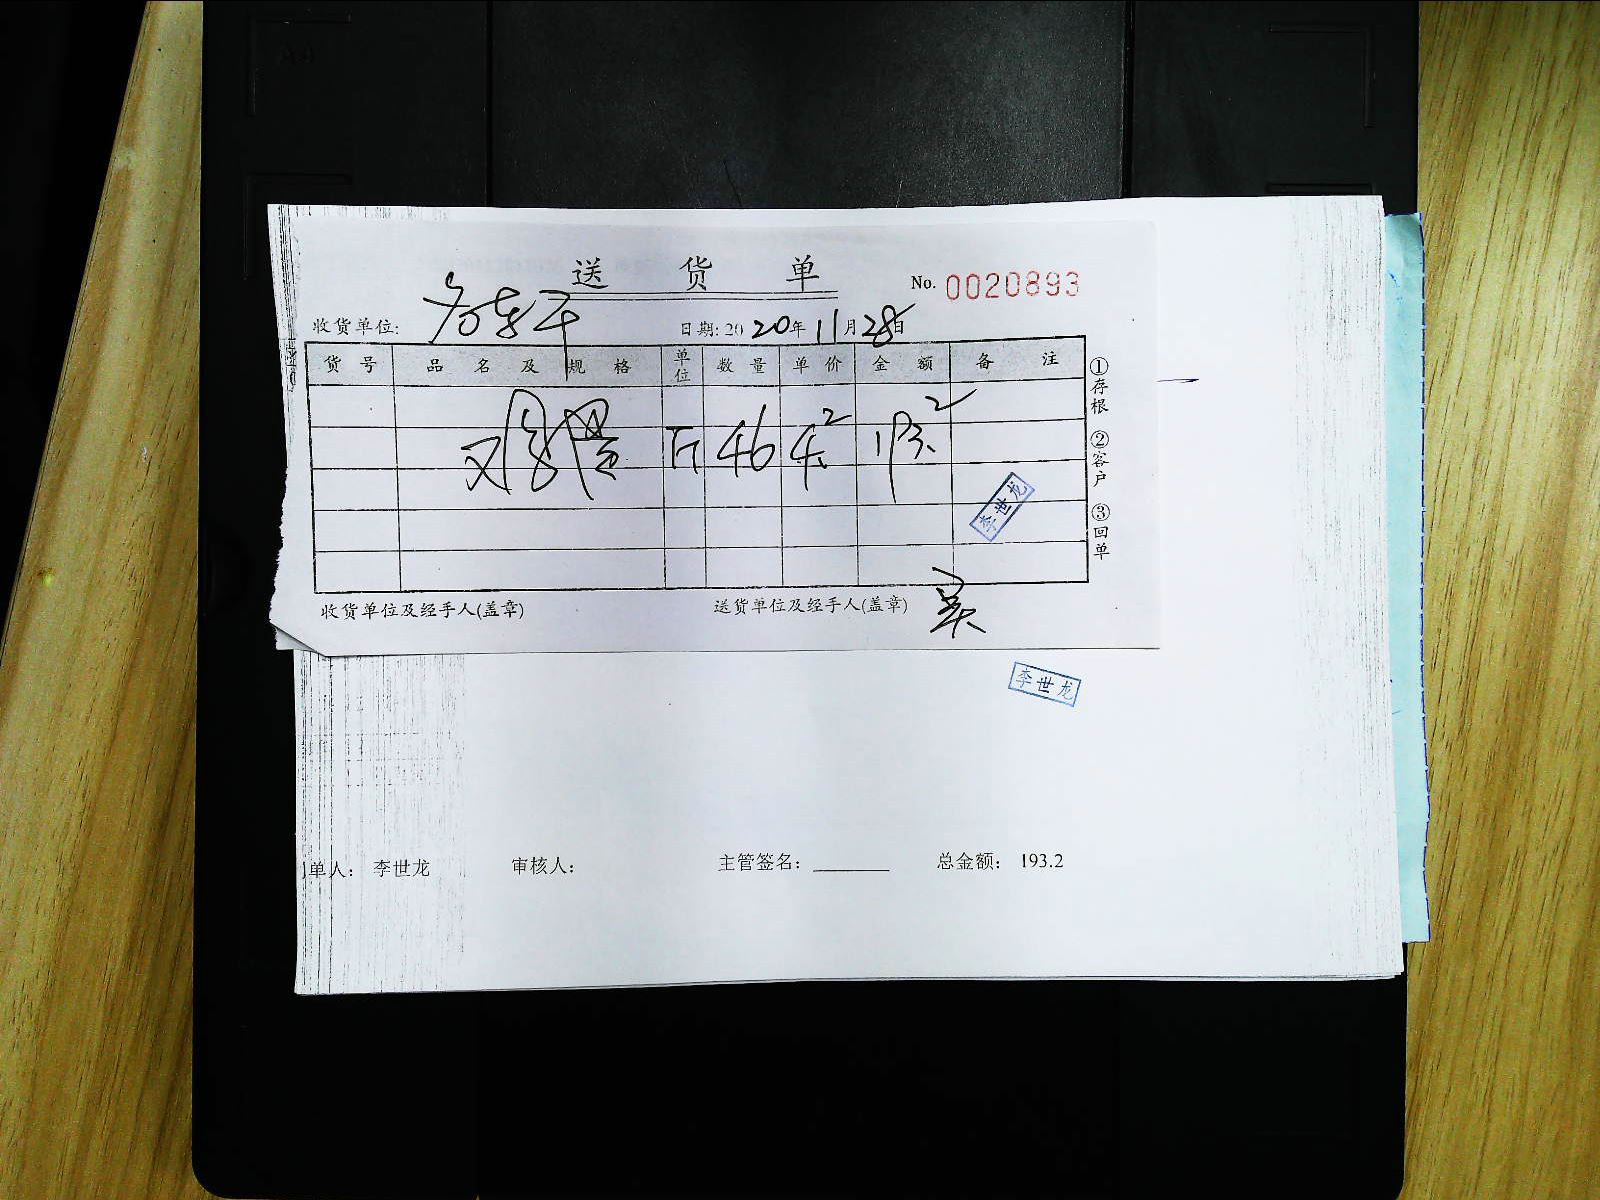 送货单
No. 0020893
收货单位:
日期: 2020年11月28日
货号 品名及规格 单位 数量 单价 金额 备注
斤 46 4.2 193.2
李世龙
①存根 ②客户 ③回单
收货单位及经手人(盖章) 送货单位及经手人(盖章) 吴
李世龙
单人: 李世龙 审核人: 主管签名: 总金额: 193.2